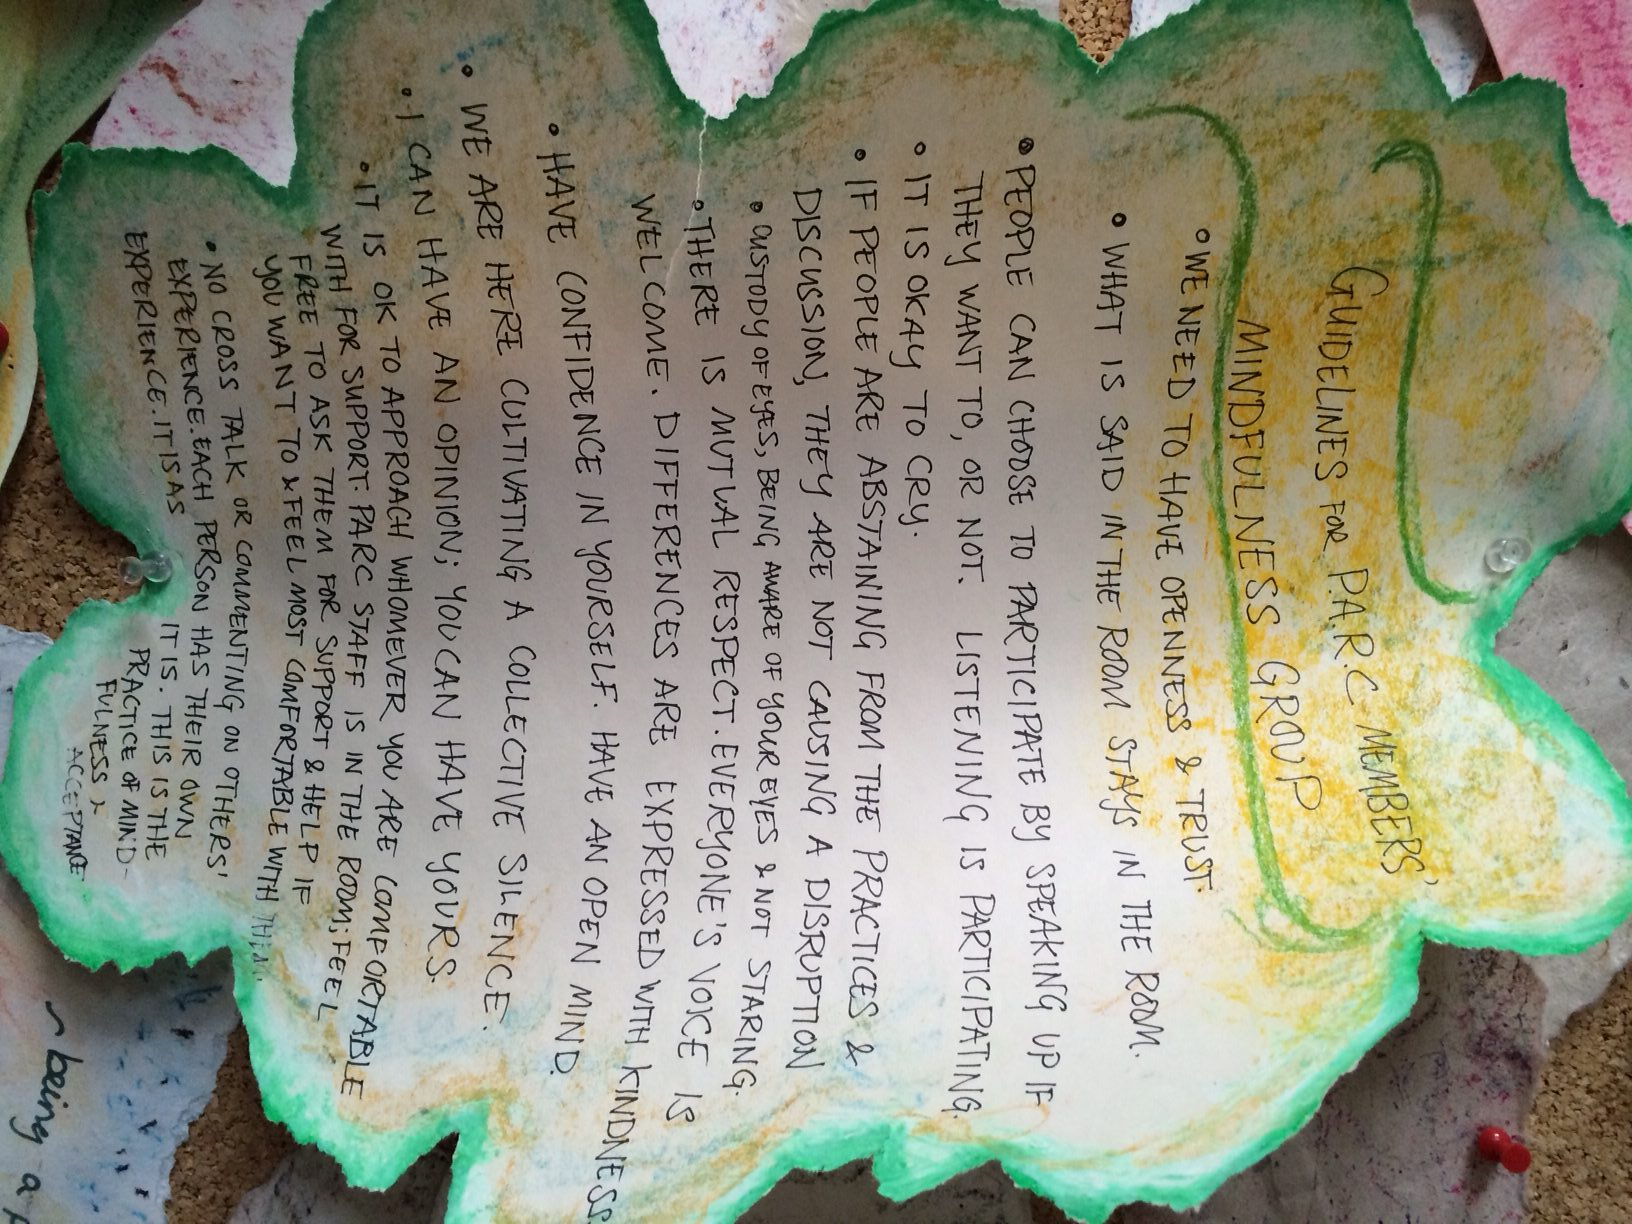 GUIDELINES FOR P.A.R.C MEMBERS'
MINDFULNESS GROUP
• WE NEED TO HAVE OPENNESS & TRUST.
• WHAT IS SAID IN THE ROOM STAYS IN THE ROOM.
• PEOPLE CAN CHOOSE TO PARTICIPATE BY SPEAKING UP IF
THEY WANT TO, OR NOT. LISTENING IS PARTICIPATING.
• IT IS OKAY TO CRY.
• IF PEOPLE ARE ABSTAINING FROM THE PRACTICES &
DISCUSSION, THEY ARE NOT CAUSING A DISRUPTION
• CUSTODY OF EYES, BEING AWARE OF YOUR EYES & NOT STARING.
• THERE IS MUTUAL RESPECT. EVERYONE'S VOICE IS
WELCOME. DIFFERENCES ARE EXPRESSED WITH KINDNESS.
• HAVE CONFIDENCE IN YOURSELF. HAVE AN OPEN MIND.
• WE ARE HERE CULTIVATING A COLLECTIVE SILENCE.
• I CAN HAVE AN OPINION; YOU CAN HAVE YOURS.
• IT IS OK TO APPROACH WHOMEVER YOU ARE COMFORTABLE
WITH FOR SUPPORT. PARC STAFF IS IN THE ROOM; FEEL
FREE TO ASK THEM FOR SUPPORT & HELP IF
YOU WANT TO & FEEL MOST COMFORTABLE WITH THEM.
• NO CROSS TALK OR COMMENTING ON OTHERS'
EXPERIENCE. EACH PERSON HAS THEIR OWN
EXPERIENCE. IT IS AS IT IS. THIS IS THE
PRACTICE OF MIND-
FULNESS &
ACCEPTANCE
~ being a